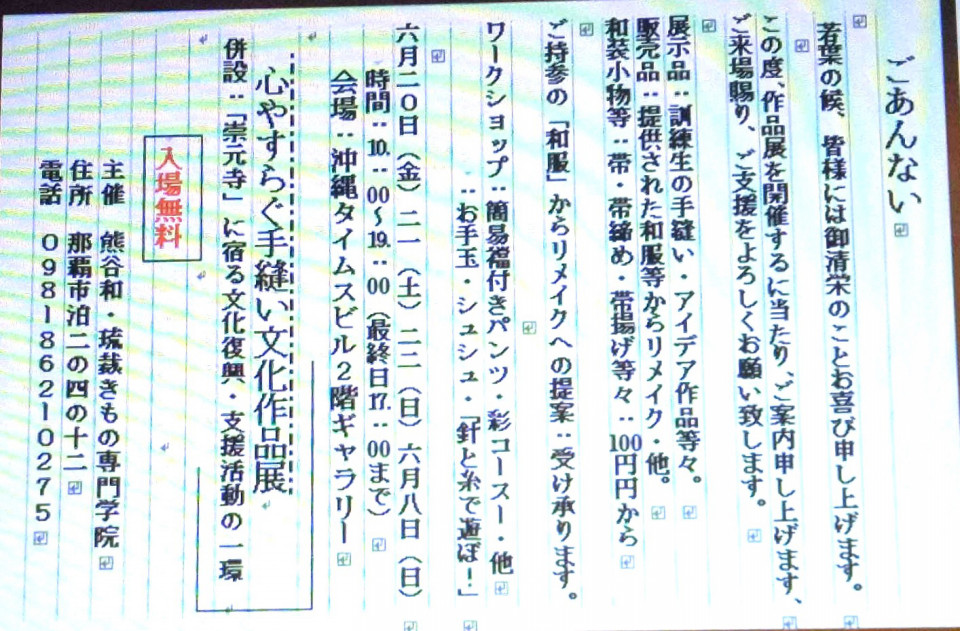 ごあんない
若葉の候、皆様には御清栄のこととお喜び申し上げます。
この度、作品展を開催するに当たり、ご案内申し上げます、
ご来場賜り、ご支援をよろしくお願い致します。
展示品：訓練生の手縫い・アイデア作品等々。
販売品：提供された和服等からリメイク・他。
和装小物等：帯・帯締め・帯揚げ等々：100円円から
ご持参の「和服」からリメイクへの提案：受け承ります。
ワークショップ：簡易襠付きパンツ・彩コースー・他
：お手玉・シュシュ・「針と糸で遊ぼ！」
六月二0日（金）二一（土）二二（日）六月八日（日）
時間：10．：00～19．：00（最終日17．：00まで）
会場：沖縄タイムスビル２階ギャラリー
心やすらぐ手縫い文化作品展
併設：「崇元寺」に宿る文化復興・支援活動の一環
入場無料
主催　熊谷和・琉裁きもの専門学院
住所　那覇市泊二の四の十二
電話　０９８－８６２－０２７５